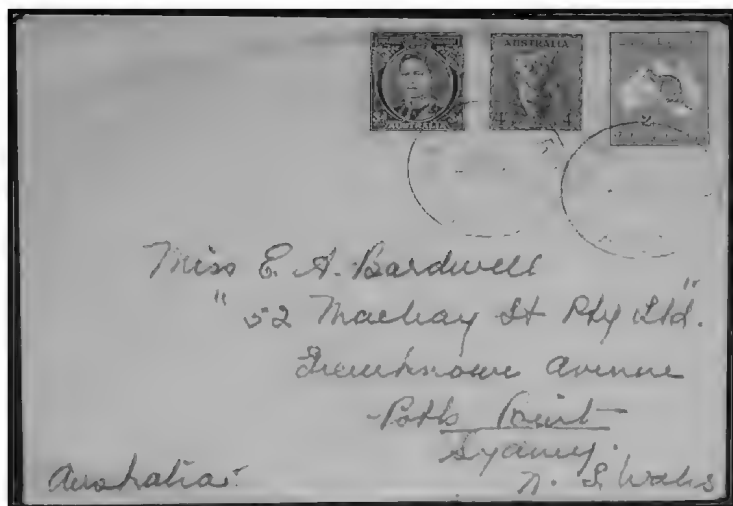 AUSTRALIA
AUSTRALIA
4 4
2
Miss E. A. Bardwell
"52 Macleay St Pty Ltd."
Greenknowe Avenue
Potts Point
Sydney.
N. S. Wales
Australia.